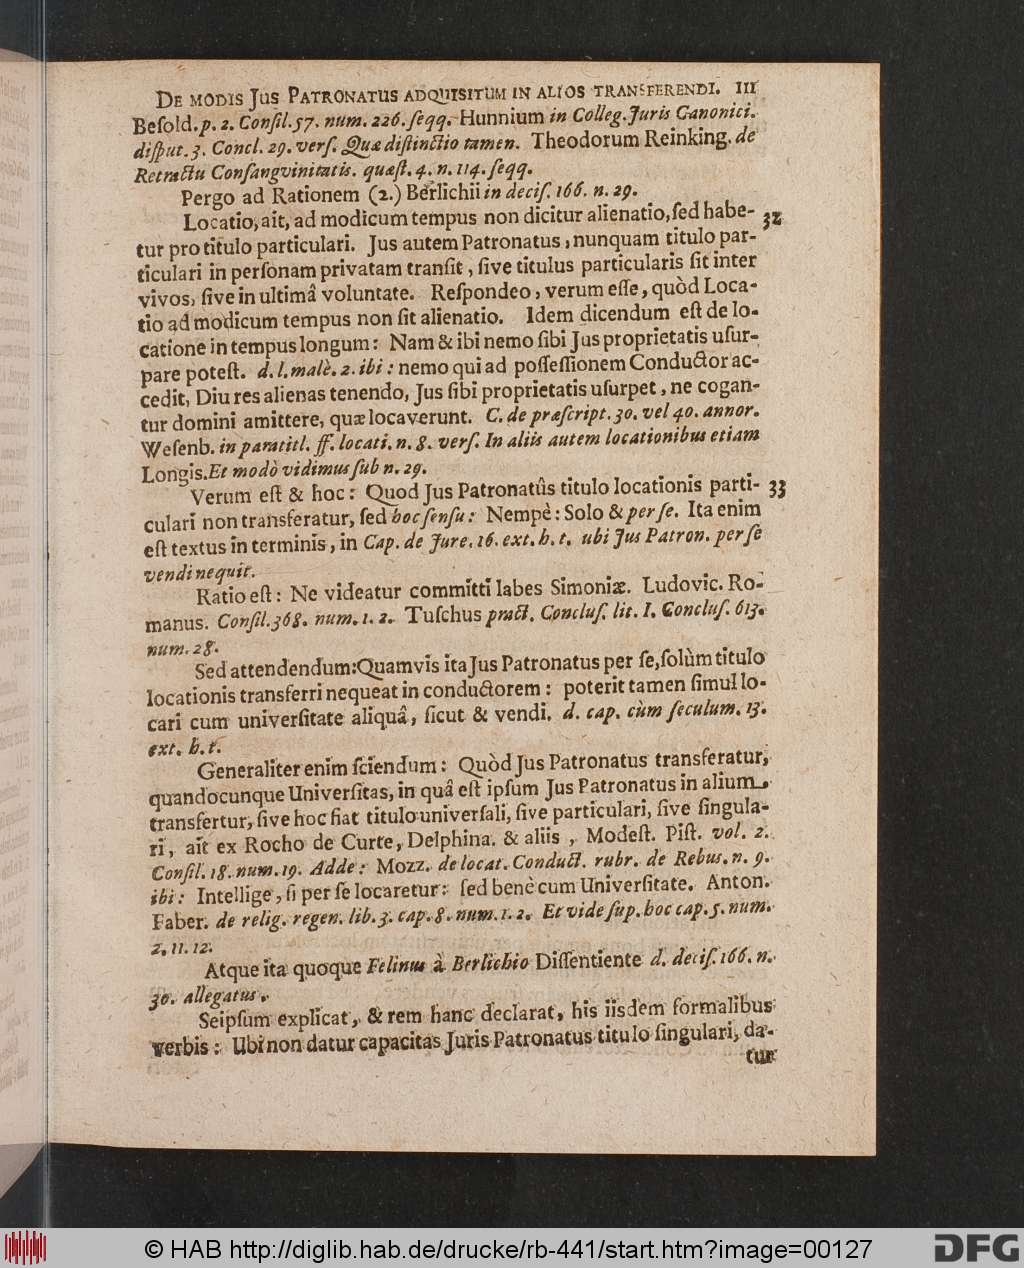 DE MODIS JUS PATRONATUS ADQUISITUM IN ALIOS TRANSFERENDI. III
Beſold. p. 2. Conſil. 57. num. 226. ſeqq. Hunnium in Colleg. Juris Canonici.
diſput. 3. Concl. 29. verſ. Quæ diſtinctio tamen. Theodorum Reinking. de
Retractu Conſangvinitatis. quæſt. 4. n. 114. ſeqq.
Pergo ad Rationem (2.) Berlichii in deciſ. 166. n. 29.
Locatio, ait, ad modicum tempus non dicitur alienatio, ſed habe- 32
tur pro titulo particulari. Jus autem Patronatus, nunquam titulo par-
ticulari in perſonam privatam tranſit, ſive titulus particularis ſit inter
vivos, ſive in ultimâ voluntate. Reſpondeo, verum eſſe, quòd Loca-
tio ad modicum tempus non ſit alienatio. Idem dicendum eſt de lo-
catione in tempus longum: Nam & ibi nemo ſibi Jus proprietatis uſur-
pare poteſt. d. l. malè. 2. ibi: nemo qui ad poſſeſſionem Conductor ac-
cedit, Diu res alienas tenendo, Jus ſibi proprietatis uſurpet, ne cogan-
tur domini amittere, quæ locaverunt. C. de præſcript. 30. vel 40. annor.
Weſenb. in paratitl. ff. locati. n. 8. verſ. In aliis autem locationibus etiam
Longis. Et modò vidimus ſub n. 29.
Verum eſt & hoc: Quod Jus Patronatûs titulo locationis parti- 33
culari non transferatur, ſed hoc ſenſu: Nempè: Solo & per ſe. Ita enim
eſt textus in terminis, in Cap. de Jure. 16. ext. h. t. ubi Jus Patron. per ſe
vendi nequit.
Ratio eſt: Ne videatur committi labes Simoniæ. Ludovic. Ro-
manus. Conſil. 368. num. 1. 2. Tuſchus pract. Concluſ. lit. I. Concluſ. 613.
num. 28.
Sed attendendum: Quamvis ita Jus Patronatus per ſe, ſolùm titulo
locationis transferri nequeat in conductorem: poterit tamen ſimul lo-
cari cum univerſitate aliquâ, ſicut & vendi. d. cap. cùm ſeculum. 13.
ext. h. t.
Generaliter enim ſciendum: Quòd Jus Patronatus transferatur,
quandocunque Univerſitas, in quâ eſt ipſum Jus Patronatus in alium
transfertur, ſive hoc fiat titulo univerſali, ſive particulari, ſive ſingula-
ri, ait ex Rocho de Curte, Delphina. & aliis, Modeſt. Piſt. vol. 2.
Conſil. 18. num. 19. Adde: Mozz. de locat. Conduct. rubr. de Rebus. n. 9.
ibi: Intellige, ſi per ſe locaretur: ſed benè cum Univerſitate. Anton.
Faber. de relig. regen. lib. 3. cap. 8. num. 1. 2. Et vide ſup. hoc cap. 5. num.
2. 11. 12.
Atque ita quoque Felinus à Berlichio Diſſentiente d. deciſ. 166. n.
30. allegatus.
Seipſum explicat, & rem hanc declarat, his iisdem formalibus
verbis: Ubi non datur capacitas Juris Patronatus titulo ſingulari, da-
tur
© HAB http://diglib.hab.de/drucke/rb-441/start.htm?image=00127
DFG